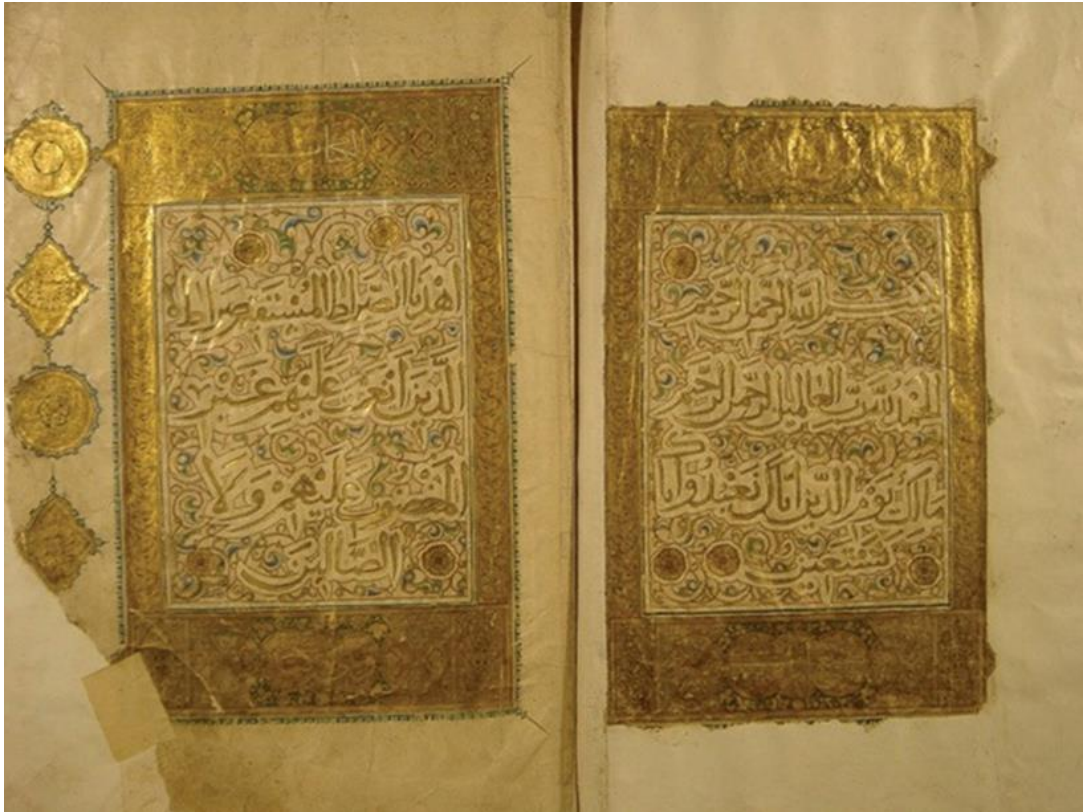 بسم الله الرحمن الرحيم
الحمد لله رب العالمين الرحمن الرحيم
مالك يوم الدين اياك نعبد واياك
نستعين
اهدنا الصراط المستقيم صراط
الذين انعمت عليهم غير
المغضوب عليهم ولا
الضالين